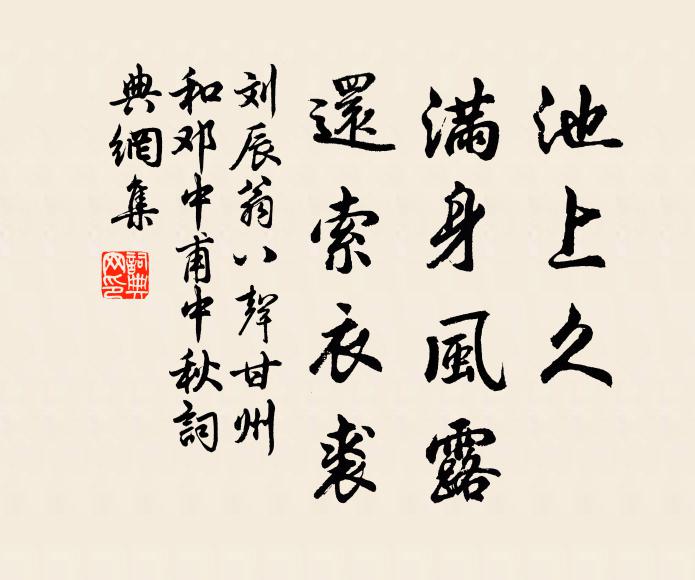 池上久
滿身風露
還索衣裘
刘辰翁八聲甘州
和邓中甫中秋詞
典網集
詞典網印